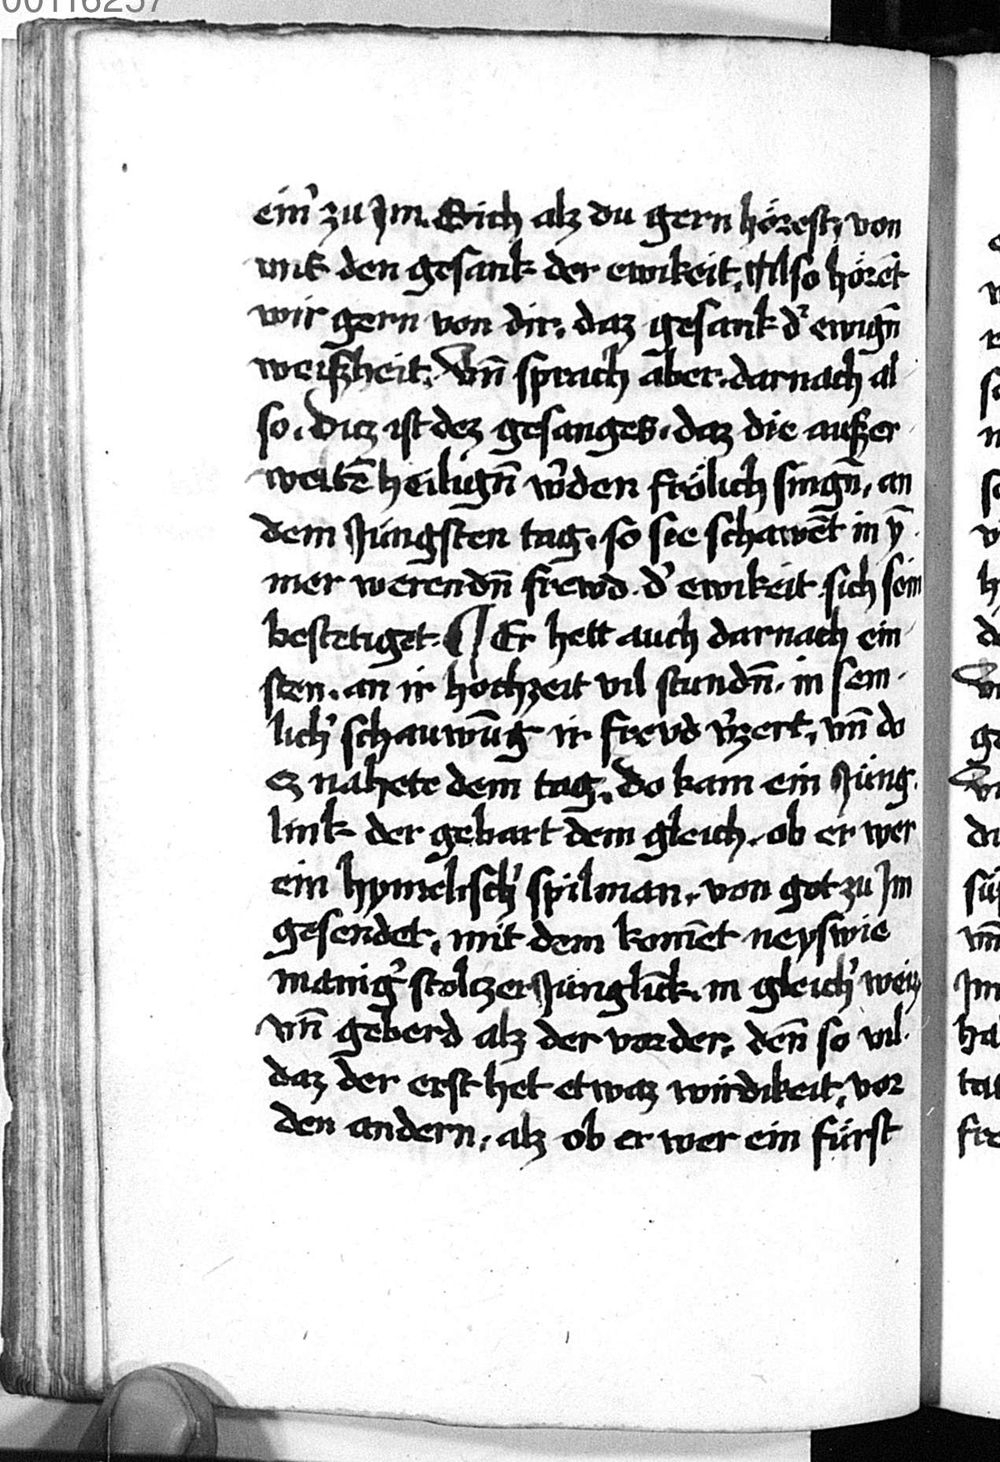 00116257
ein' zu Jm. Sich alz du gern hörest, von
uns den gesank der ewikeit, Also hörēt
wir gern von dir, daz gesank d' ewign̄
weißheit. Vn̄ sprach aber. darnach al
so. Ditz ist dez gesanges. daz die außer
weltē heilign̄ w'den frölich singn̄, an
dem Jüngsten tag. so sie schawēt in ẏ
mer werendn̄ frewd. d' ewikeit sich sein
bestetiget. ¶ Er hett auch darnach ein
sten. an ir hochzeit vil stundn̄. in sem
lich' schauwūg ir frevd v'zert, vn̄ do
ez nahete dem tag. Do kam ein Jüng
link der gebart dem gleich. ob er wer
ein hymelisch' spilman, von got zu Jm
gesendet, mit dem komēt neyswie
manig' stolczer Jünglīk. in gleich' weiz
vn̄ geberd alz der vorder. den̄ so vil
daz der erst het etwaz wirdikeit, vor
den andern, alz ob er wer ein fürst